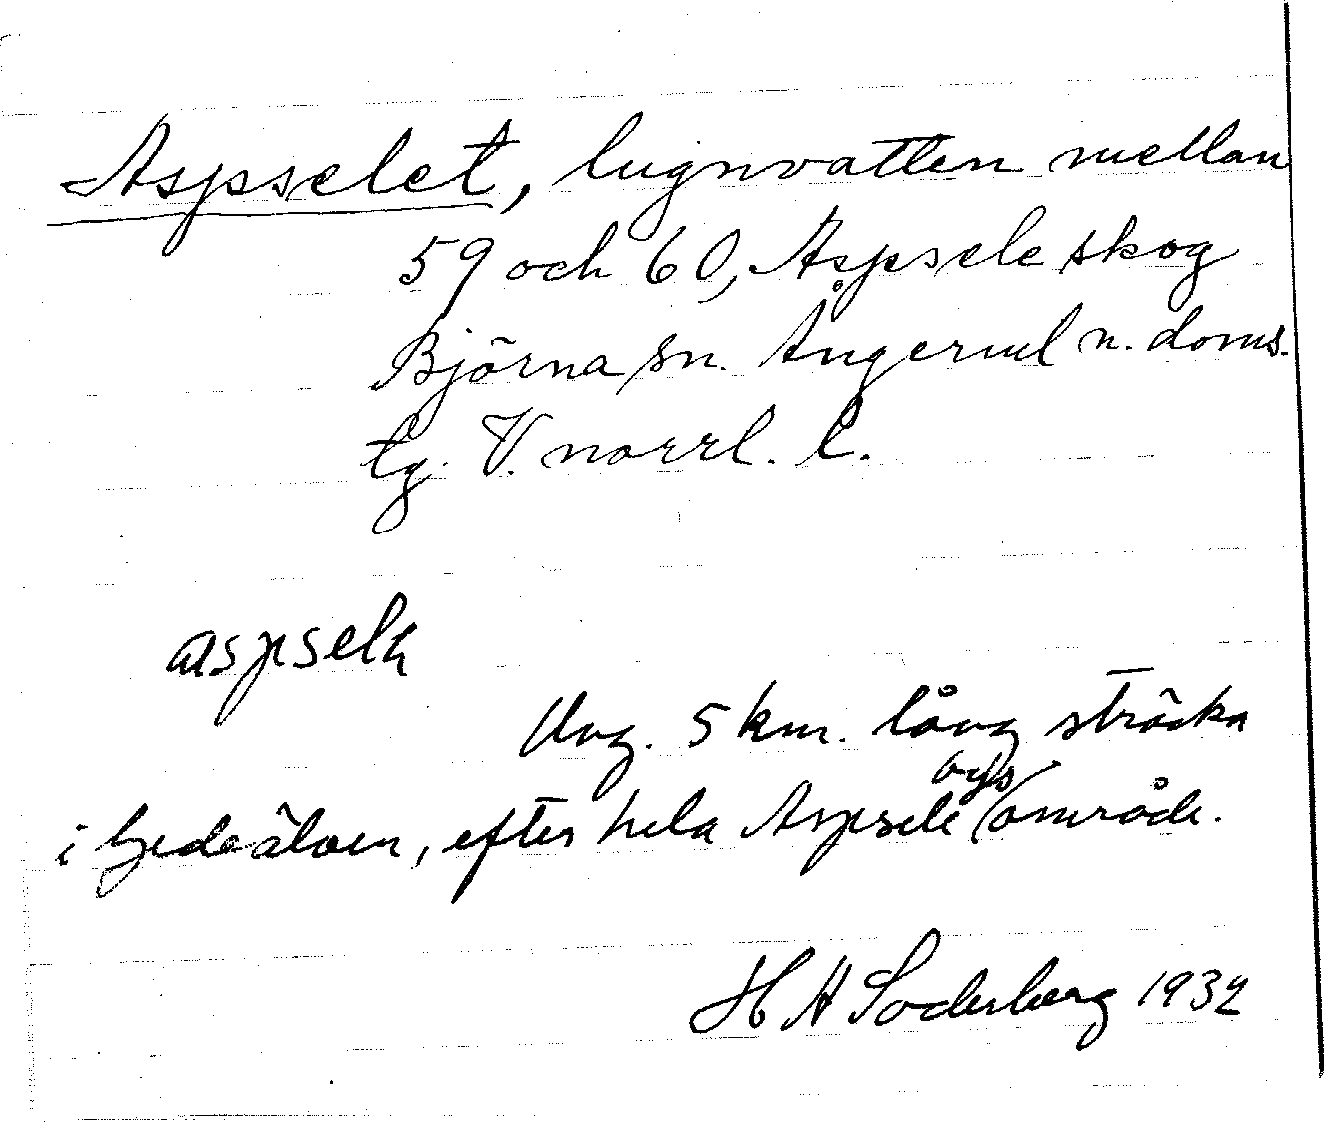 Aspselet, lugnvatten mellan
59 och 60, Aspsele skog
Björna sn. Ångerml n. doms.
tg. V. norrl. l.
aspselɐ
Ung. 5 km. lång sträcka
i Gedeälven, efter hela Aspsele bys område.
H A Söderberg 1932